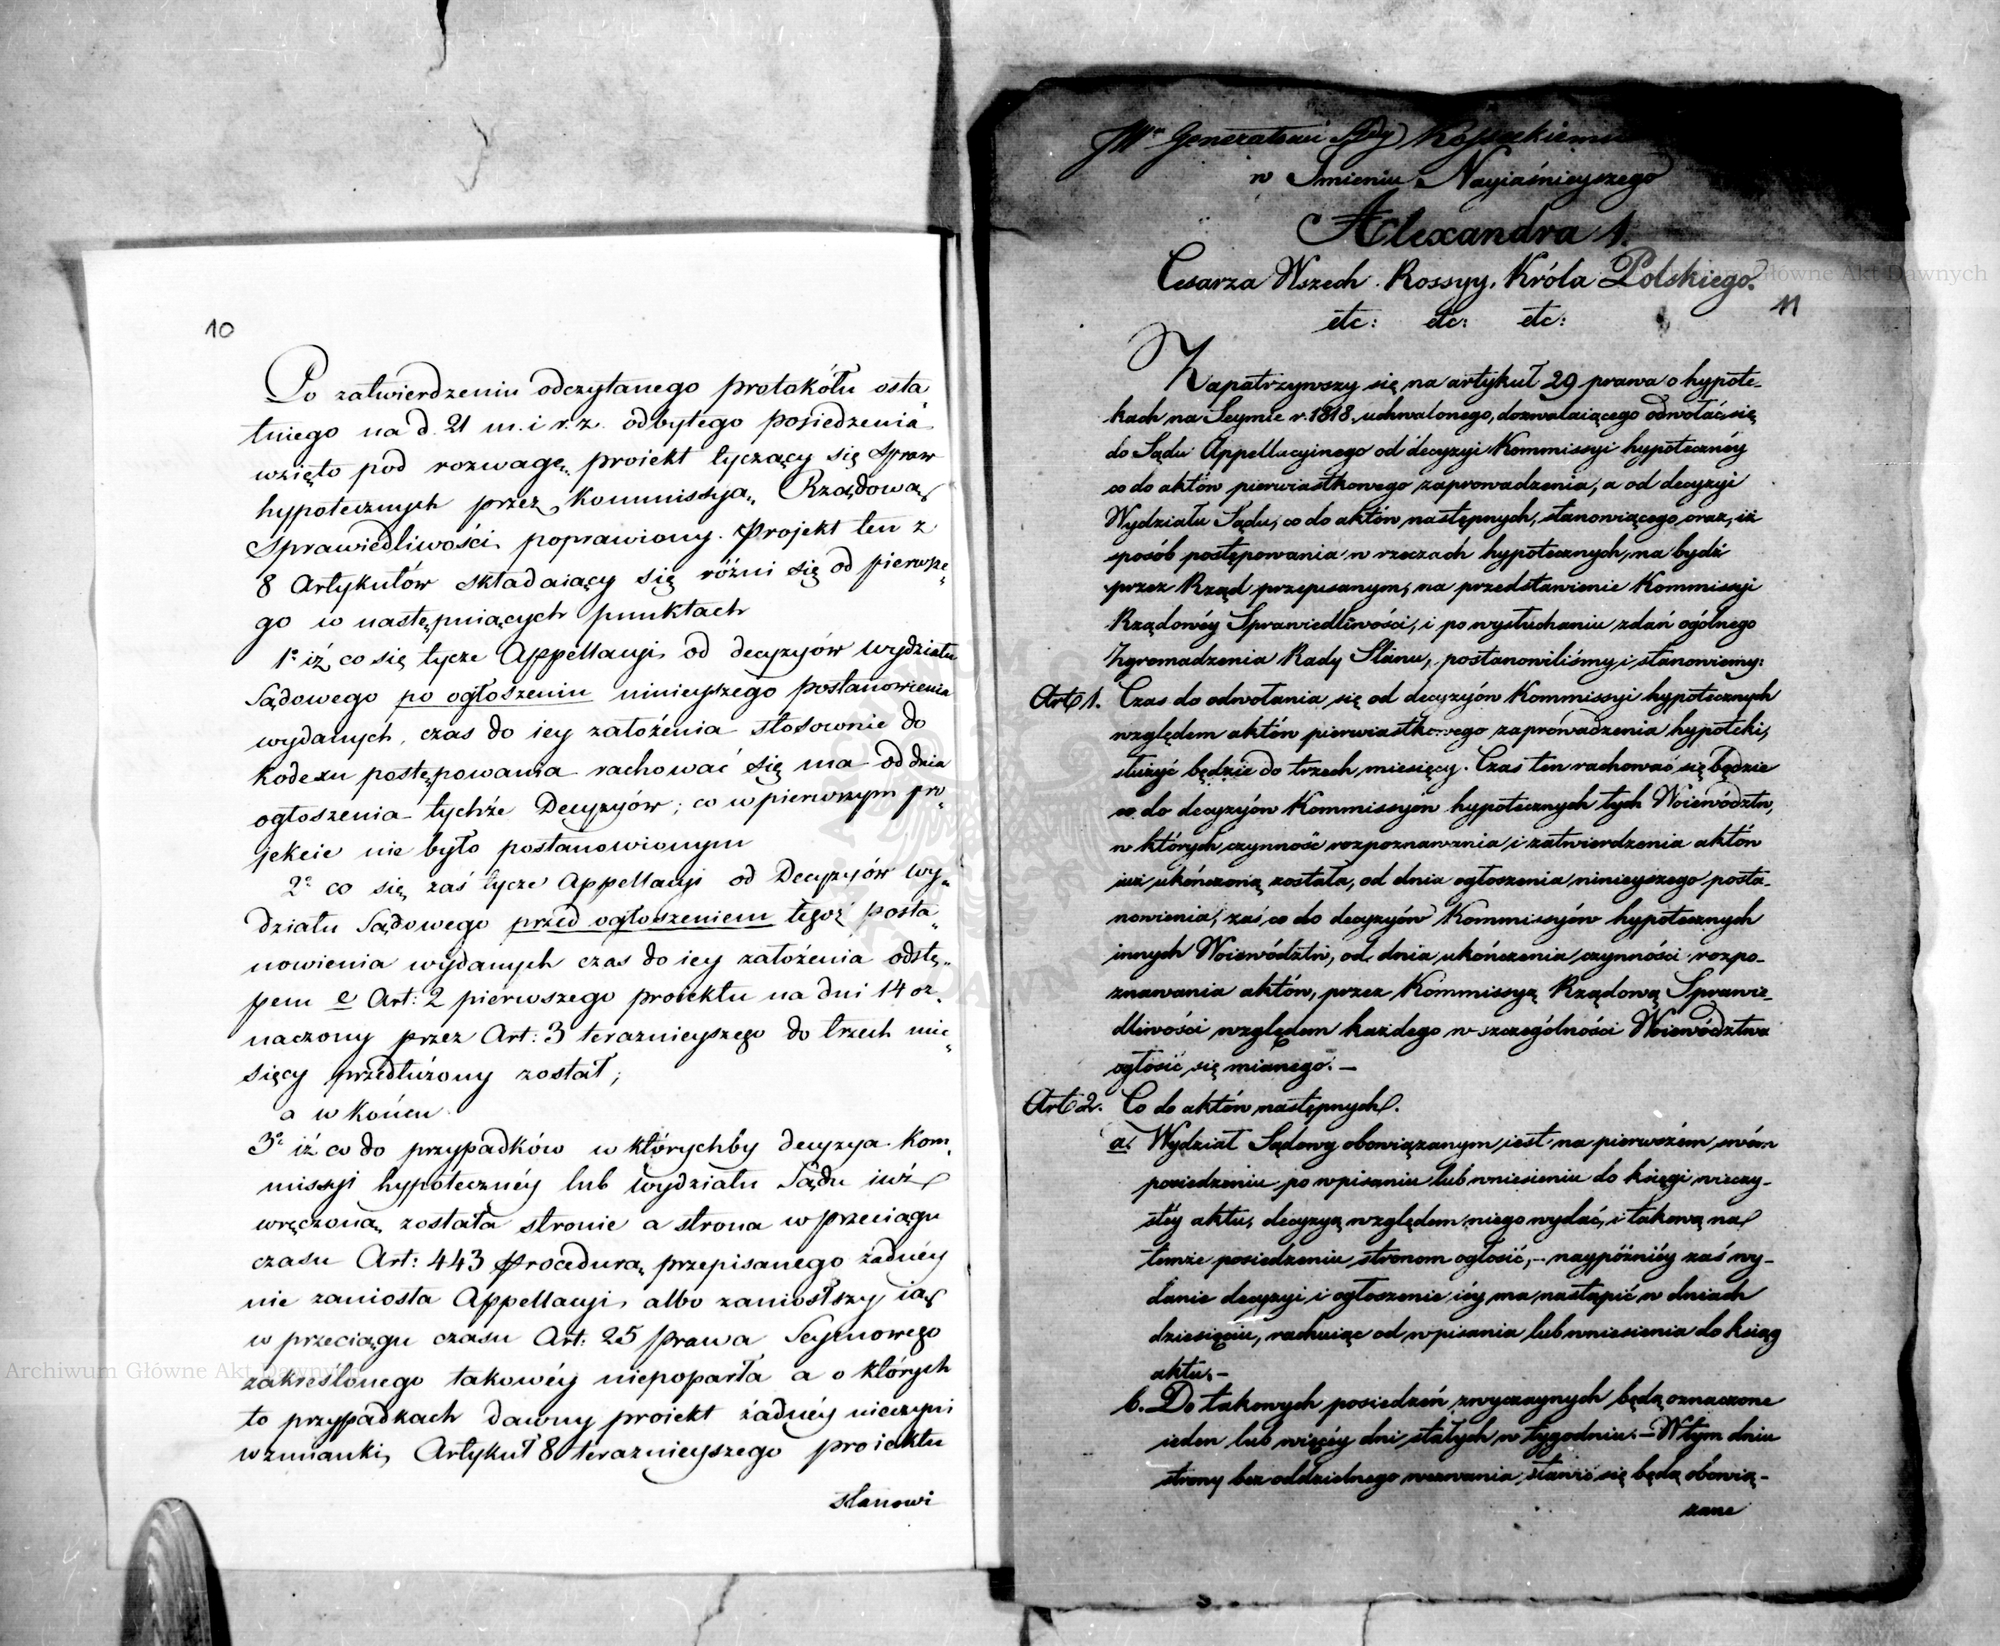 10
Po zatwierdzeniu odczytanego protokółu osta„
tniego na d. 21 m. i r. z. odbytego posiedzenia
wzięto pod rozwagę, proiekt tyczący się Spraw
hypotecznych przez Kommissyą Rządową
Sprawiedliwości poprawiony. Projekt ten z
8 Artykułów składaiący się różni się od pierwsze„
go w następuiących punktach
1º iż co się tycze Appellacyi od decyzyów wydziału
Sądowego po ogłoszeniu ninieyszego postanowienia
wydanych, czas do iey założenia stosownie do
kodexu postępowania rachować się ma od dnia
ogłoszenia tychże Decyzyów; co w pierwszym pro„
jekcie nie było postanowionym
2º co się zaś tycze Appellacyi od Decyzyów Wy„
działu Sądowego przed ogłoszeniem tegoż posta„
nowienia wydanych czas do iey założenia odstę„
pem e Art: 2 pierwszego proiektu na dni 14 oz„
naczony przez Art: 3 teraznieyszego do trzech mie„
sięcy przedłużony został;
a w końcu
3º iż co do przypadków w którychby decyzya Kom„
missyi hypotecznéy lub wydziału Sądu iuż
wręczoną została stronie a strona w przeciągu
czasu Art: 443 Procedurą przepisanego żadnéy
nie zaniosła Appellacyi, albo zaniosłszy ią
w przeciągu czasu Art: 25 prawa Seymowego
zakreślonego takowéy niepoparła a o których
to przypadkach dawny proiekt żadnéy nieczyni
wzmianki, Artykuł 8 teraznieyszego proiektu
stanowi
JWu Generałowi
w Imieniu Nayiaśnieyszego
Alexandra 1.
Cesarza Wszech Rossyy, Króla Polskiego.
etc: etc: etc:
11
Zapatrzywszy się na artykuł 29 prawa o hypote-
kach na Seymie r. 1818. uchwalonego, dozwalaiącego odwołać się
do Sądu Appellacyinego od decyzyi Kommissyi hypotecznéy
co do aktów pierwiastkowego zaprowadzenia, a od decyzyi
Wydziału Sądu, co do aktów następnych, stanowiącego oraz, iż
sposób postępowania w rzeczach hypotecznych, ma bydź
przez Rząd przepisanym, na przedstawienie Kommissyi
Rządowéy Sprawiedliwości, i po wysłuchaniu zdań ogólnego
Zgromadzenia Rady Stanu, postanowiliśmy i stanowiemy:
Art 1. Czas do odwołania się od decyzyów Kommissyi hypotecznych
względem aktów pierwiastkowego zaprowadzenia hypoteki,
służyć będzie do trzech miesięcy. Czas ten rachować się będzie
co do decyzyów Kommissyów hypotecznych tych Woiewództw,
w których czynność rozpoznawania i zatwierdzenia aktów
iuż ukończoną została, od dnia ogłoszenia ninieyszego posta-
nowienia, zaś co do decyzyów Kommissyów hypotecznych
innych Woiewództw, od dnia ukończenia czynności rozpo-
znawania aktów, przez Kommissyą Rządową Sprawie-
dliwości względem każdego w szczególności Woiewództwa
ogłosić się mianego. —
Art 2. Co do aktów następnych.
a. Wydział Sądowy obowiązanym iest na pierwszém swém
posiedzeniu po wpisaniu lub wniesieniu do księgi wieczy-
stéy aktu, decyzyą względem niego wydać, i takową na
temże posiedzeniu stronom ogłosić, — naypóźniéy zaś wy-
danie decyzyi i ogłoszenie iéy ma nastąpić w dniach
dziesięciu, rachuiąc od wpisania lub wniesienia do ksiąg
aktu. —
b. Do takowych posiedzeń zwyczaynych będą oznaczone
ieden lub więcéy dni stałych w tygodniu. — W tym dniu
strony bez oddzielnego wezwania stawić się będą obowią-
zane